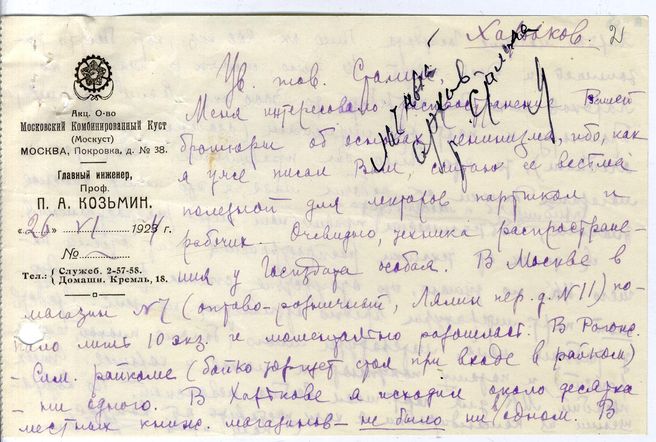 Харьков
2
Акц. О-во
Московский Комбинированный Куст
(Москуст)
МОСКВА, Покровка, д. № 38.
Главный инженер,
Проф.
П. А. КОЗЬМИН.
«26» VI 1924 г.
№
Тел.: { Служеб. 2-57-58.
Домашн. Кремль, 18.
Ув. тов. Сталин,
Меня интересовало распространение Вашей
брошюры об основах ленинизма, ибо, как
я уже писал Вам, считаю ее весьма
полезной для
рабочих. Очевидно, техника распростране-
ния у Госиздата особая. В Москве в
магазин №7 (оптово-розничный, Лялин пер. д. №11) по-
пало лишь 10 экз. и моментально разошлась. В Рогож.
- Сим. райкоме (бойко торгует стол при входе в райком)
- ни одного. В Харькове я исходил около десятка
местных книжн. магазинов - не было ни одном. В
архив
Сталина